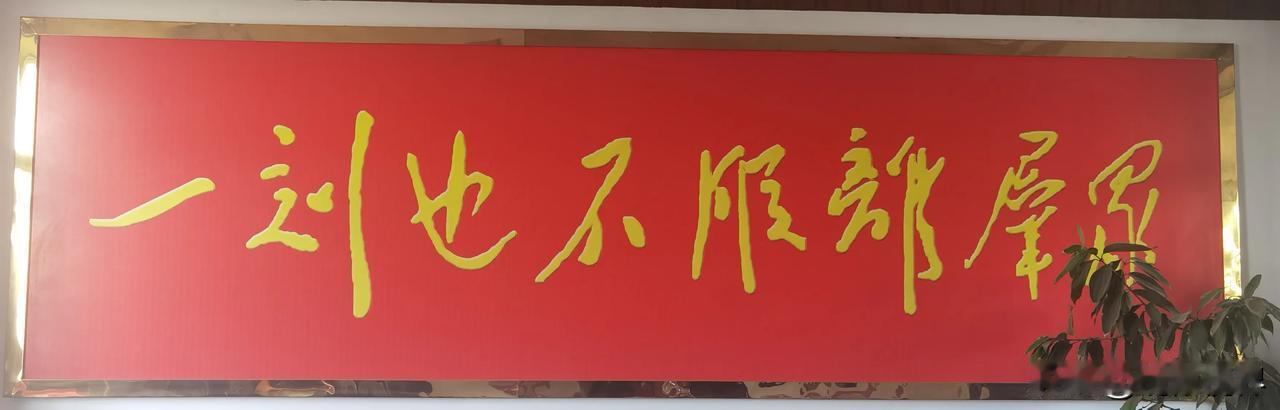 一刻也不脱離羣眾